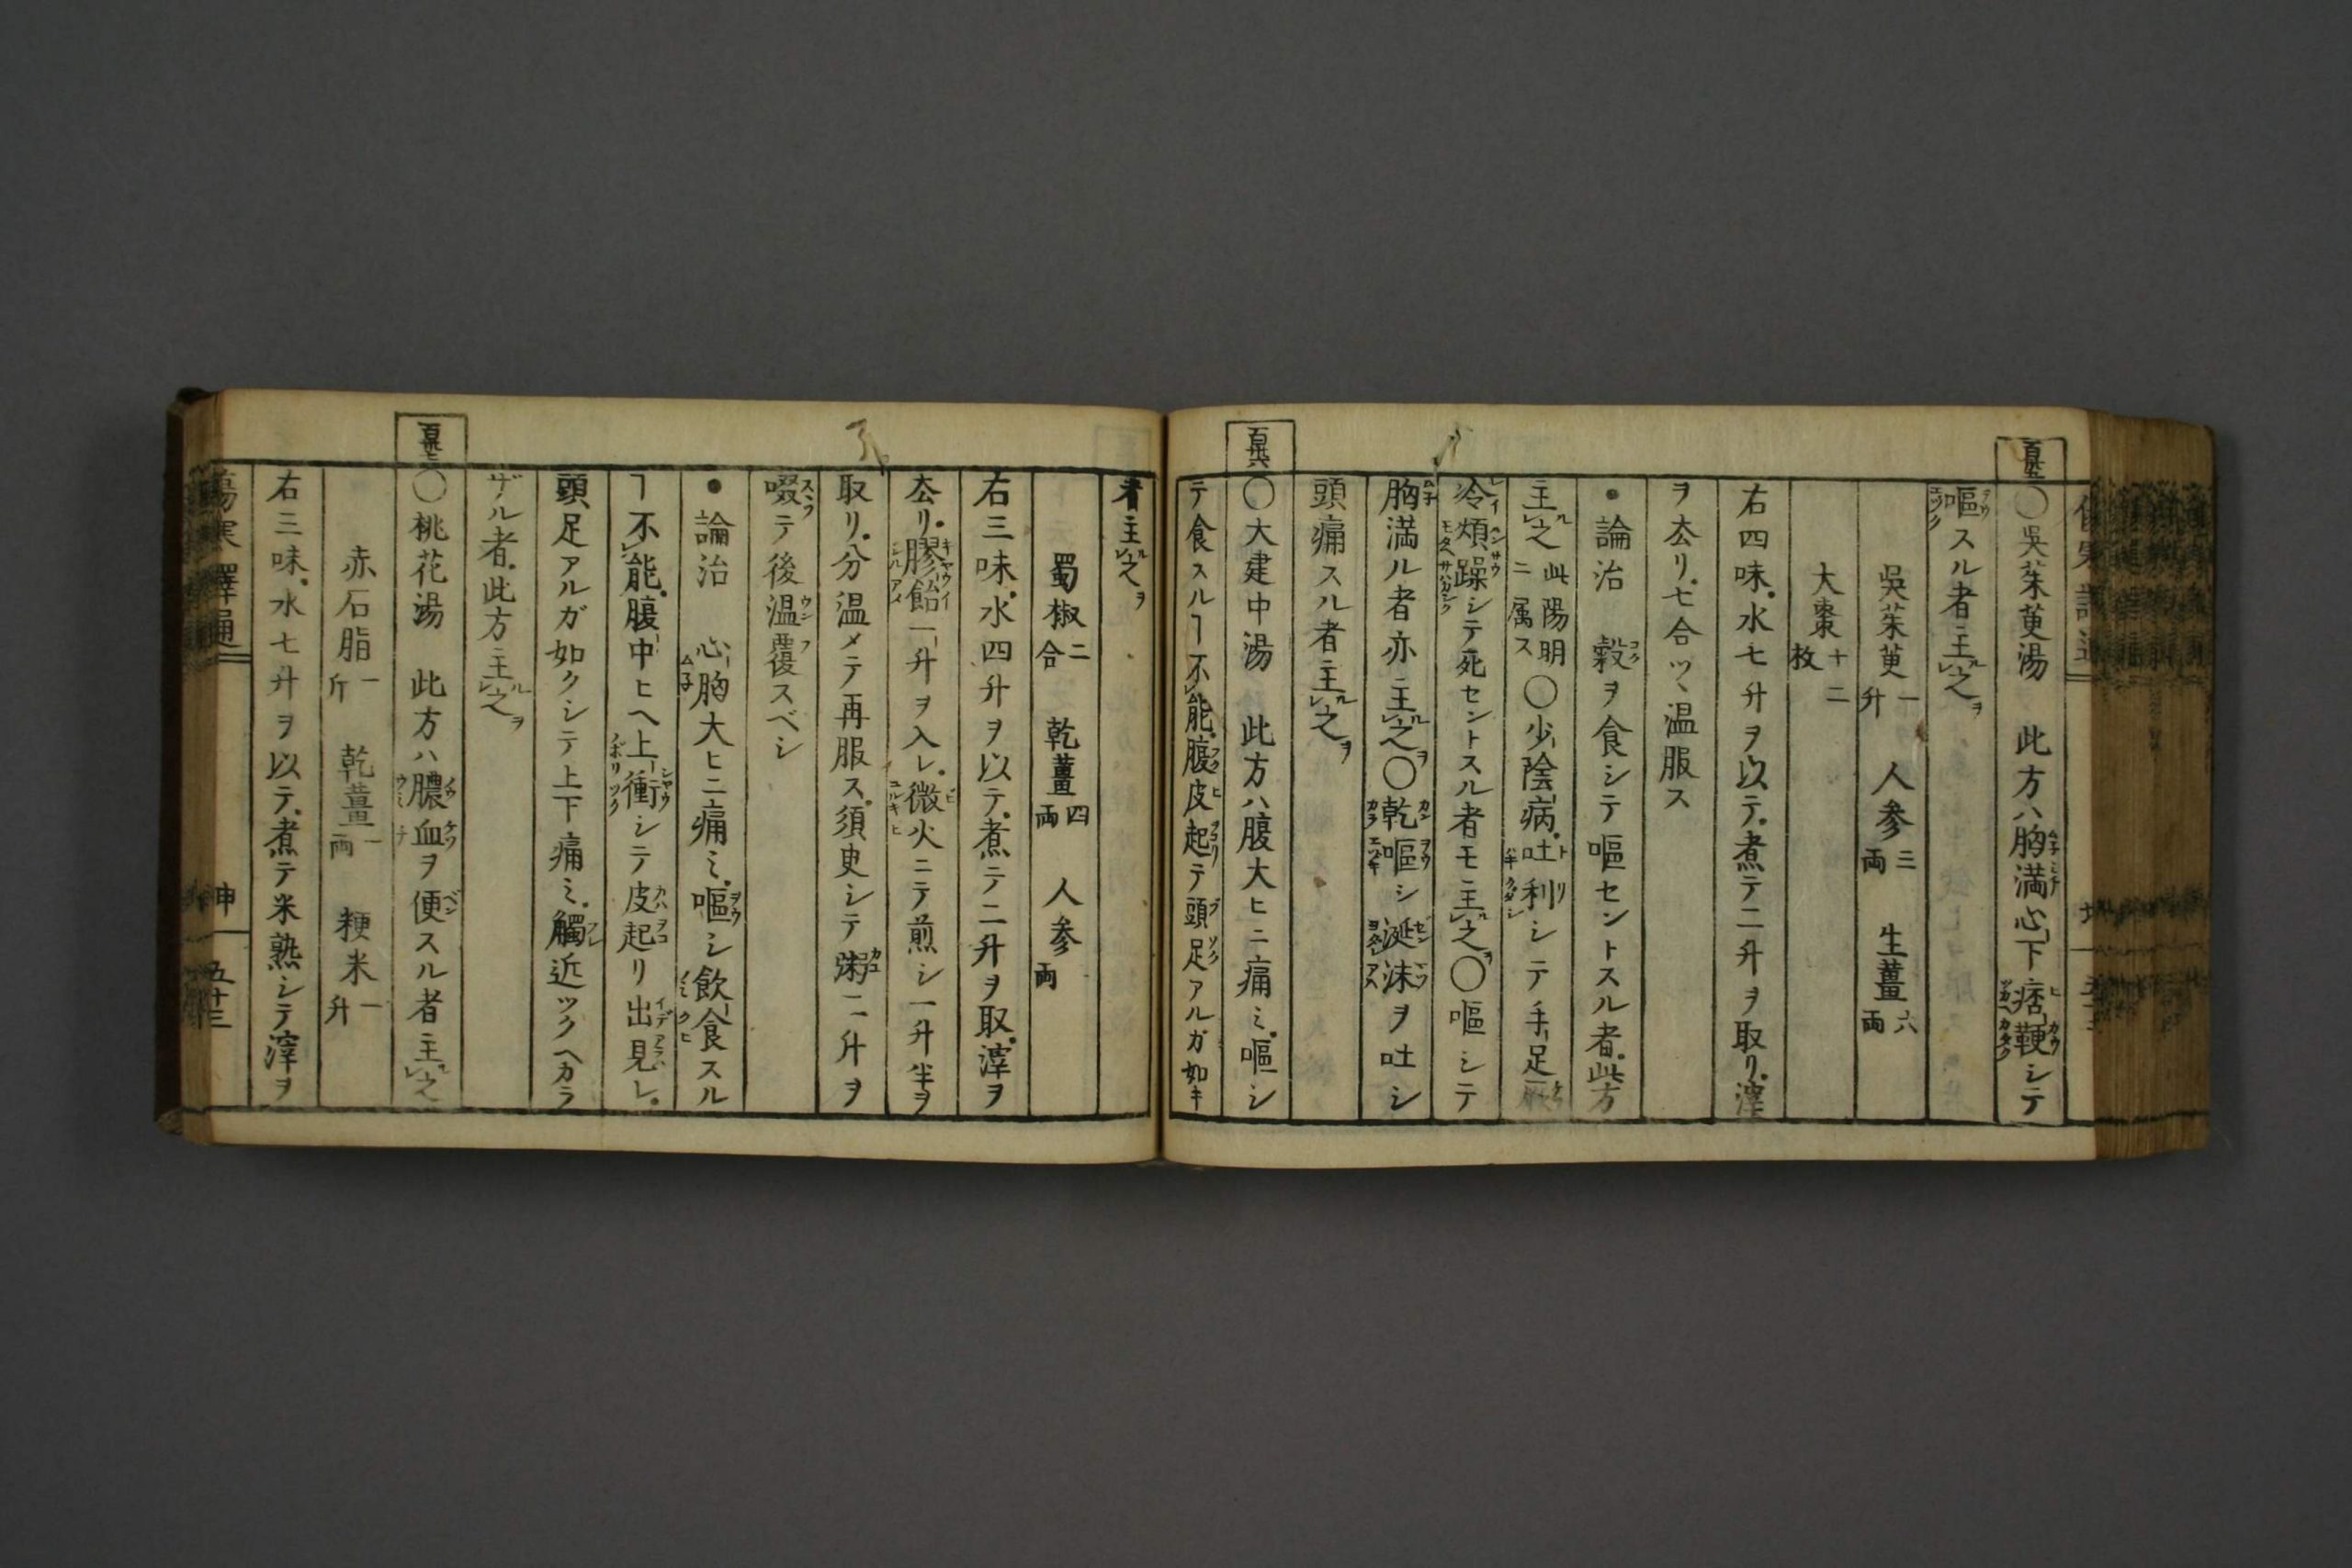 ○呉茱萸湯　此方ハ胸満心下痞鞕シテ
嘔スル者主ルレ之ヲ
呉茱萸一升　人参三両　生薑六両
大棗十二枚
右四味。水七升ヲ以テ。煮テ二升ヲ取リ。滓
ヲ厺リ。七合ツヽ温服ス
●論治　穀ヲ食シテ嘔セントスル者。此方
主ルレ之 此陽明ニ属ス ○少陰病。吐利シテ手足厥
冷煩躁シテ死セントスル者モ主ルレ之ヲ○嘔シテ
胸満ル者亦主ルレ之ヲ○乾嘔シ涎沫ヲ吐シ
頭痛スル者主ルレ之ヲ
○大建中湯　此方ハ腹大ヒニ痛ミ。嘔シ
テ食スルヿ不レ能。腹皮起リテ頭足アルガ如キ
者主ルレ之ヲ
蜀椒二合　乾薑四両　人参両
右三味。水四升ヲ以テ。煮テ二升ヲ取。滓ヲ
厺リ。膠飴一升ヲ入レ。微火ニテ煎シ一升半ヲ
取リ。分温メテ再服ス。須臾シテ粥二升ヲ
啜テ後温覆スベシ
●論治　心胸大ヒニ痛ミ。嘔シ飲食スル
ヿ不レ能。腹中ヒヘ上衝シテ皮起リ出見レ。
頭足アルガ如クシテ上下痛ミ。觸近ツクヘカラ
ザル者。此方主ルレ之ヲ
○桃花湯　此方ハ膿血ヲ便スル者主ルレ之
赤石脂一斤　乾薑一両　粳米一升
右三味。水七升ヲ以テ。煮テ米熟シテ滓ヲ
傷寒譯通　坤　五十三